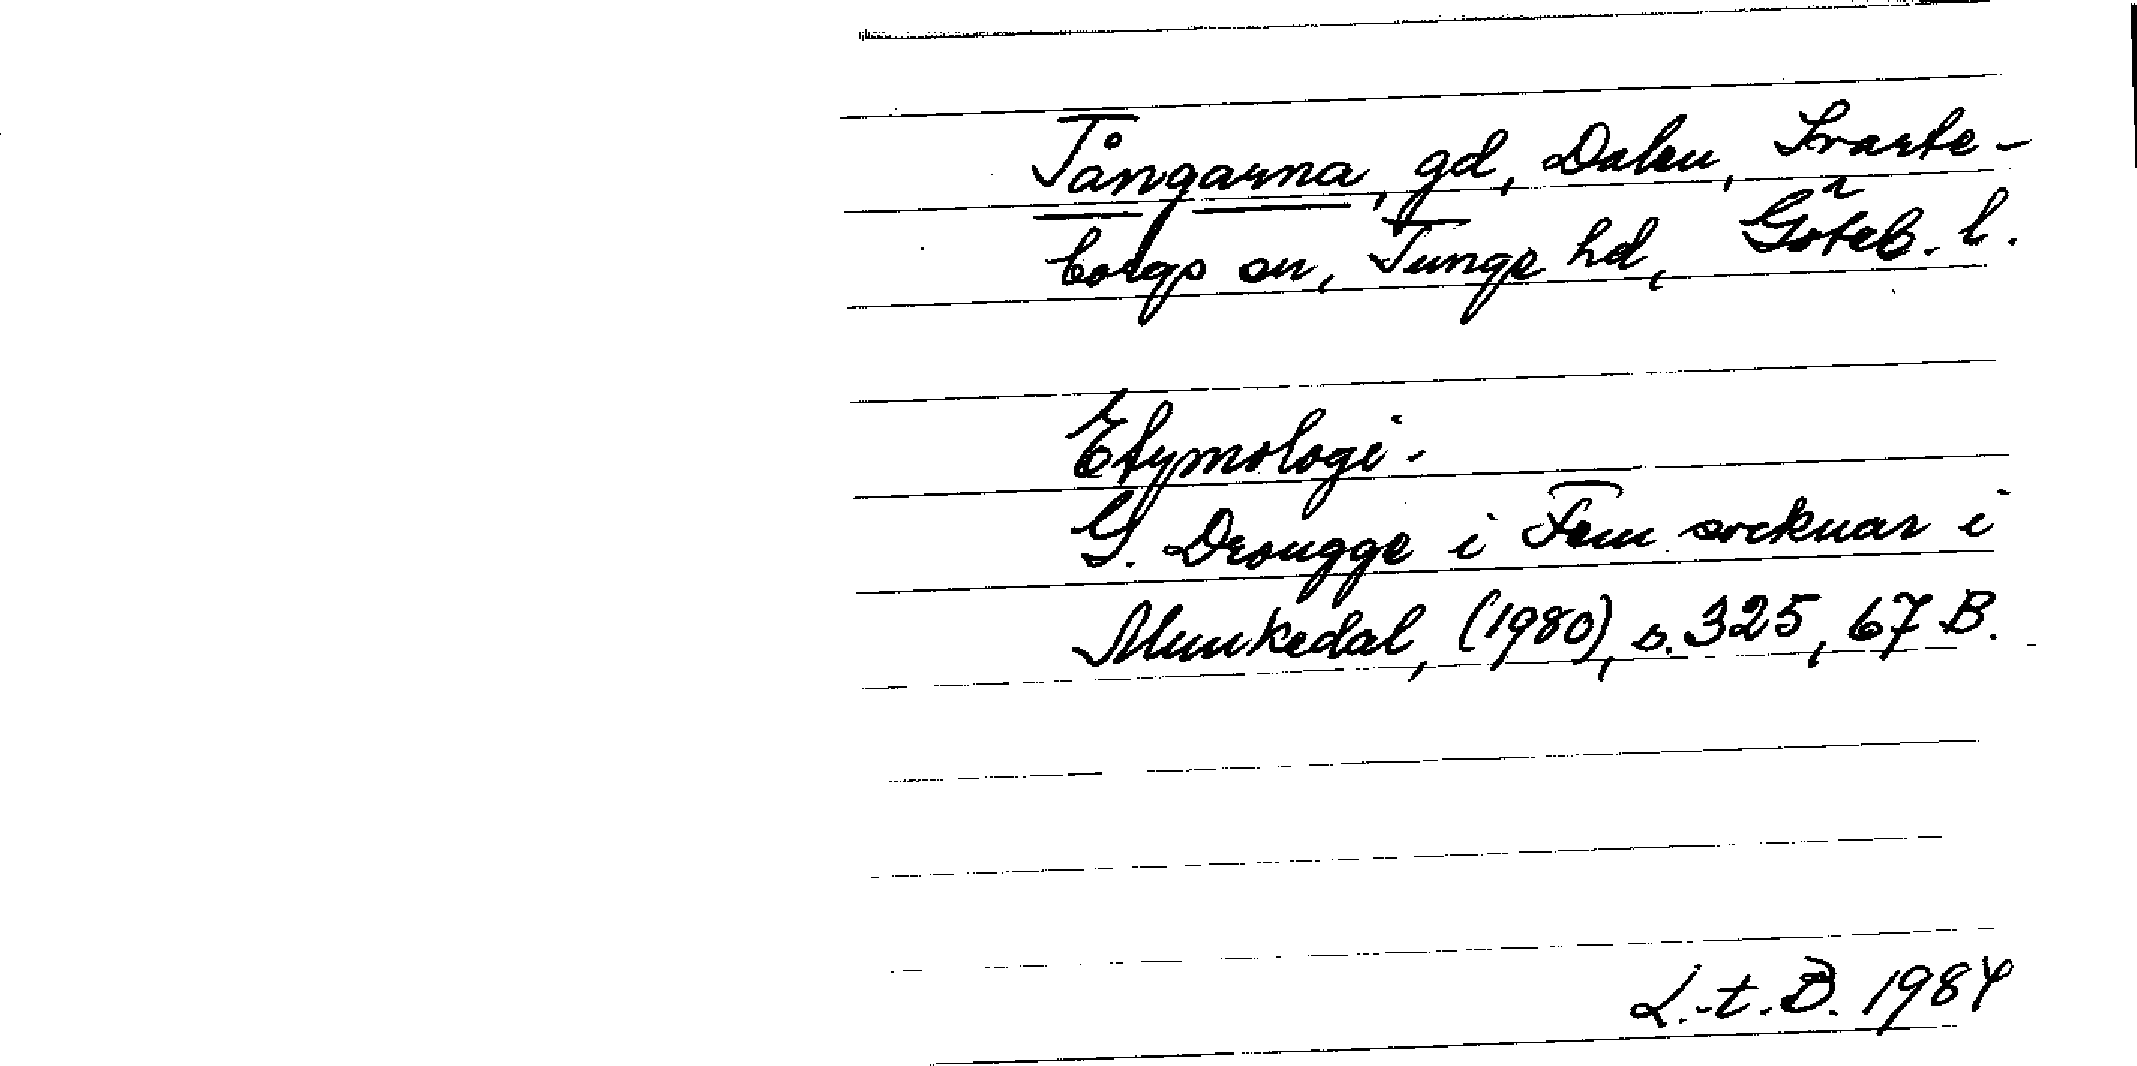 Tångarna, gd, Dalen, Svarte-
borgs sn, Tunge hd, Göteb. l.
Etymologi.
G. Drougge i Fem socknar i
Munkedal, (1980), s. 325, 67 B.
L.-t. B. 1984